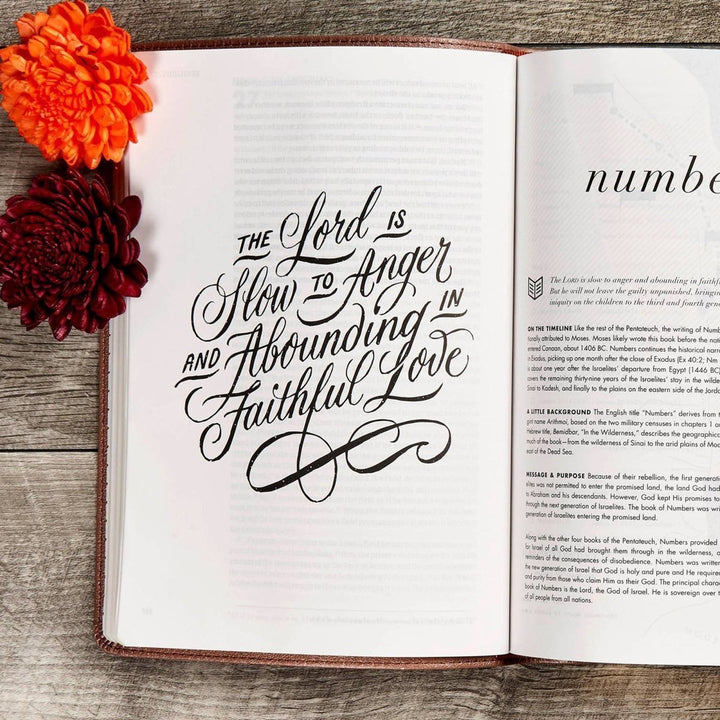 THE Lord IS
Slow TO Anger
AND Abounding IN
Faithful Love
numbe
The LORD is slow to anger and abounding in faithf
But he will not leave the guilty unpunished, bringing
iniquity on the children to the third and fourth gene
ON THE TIMELINE Like the rest of the Pentateuch, the writing of Numb
tionally attributed to Moses. Moses likely wrote this book before the nati
entered Canaan, about 1406 BC. Numbers continues the historical narra
in Exodus, picking up one month after the close of Exodus (Ex 40:2; Nm
is about one year after the Israelites' departure from Egypt (1446 BC)
covers the remaining thirty-nine years of the Israelites' stay in the wilde
Sinai to Kadesh, and finally to the plains on the eastern side of the Jorda
A LITTLE BACKGROUND The English title "Numbers" derives from t
gint name Arithmoi, based on the two military censuses in chapters 1 a
Hebrew title, Bemidbar, "In the Wilderness," describes the geographica
much of the book—from the wilderness of Sinai to the arid plains of Moa
east of the Dead Sea.
MESSAGE & PURPOSE Because of their rebellion, the first generati
elites was not permitted to enter the promised land, the land God had
to Abraham and his descendants. However, God kept His promises to
through the next generation of Israelites. The book of Numbers was writ
generation of Israelites entering the promised land.
Along with the other four books of the Pentateuch, Numbers provided
for Israel of all God had brought them through in the wilderness, a
reminders of the consequences of disobedience. Numbers was written
the new generation of Israel that God is holy and pure and He require
and purity from those who claim Him as their God. The principal charac
book of Numbers is the Lord, the God of Israel. He is sovereign over t
of all people from all nations.